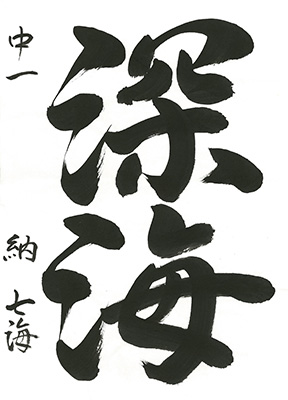 深海
中一 納 七海